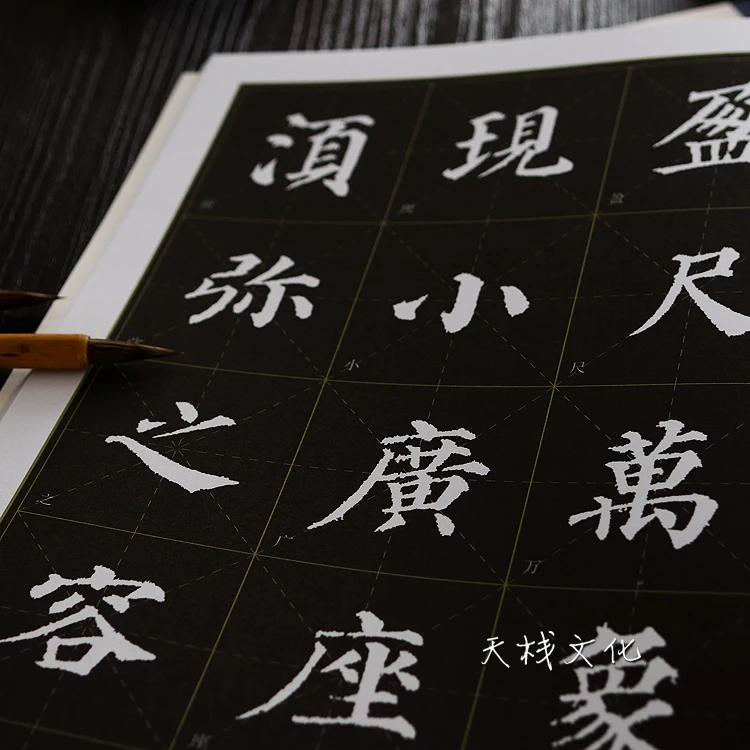 盈尺萬象
現小廣座
湏弥之容
尺
万
小
广
座
之
天栈文化